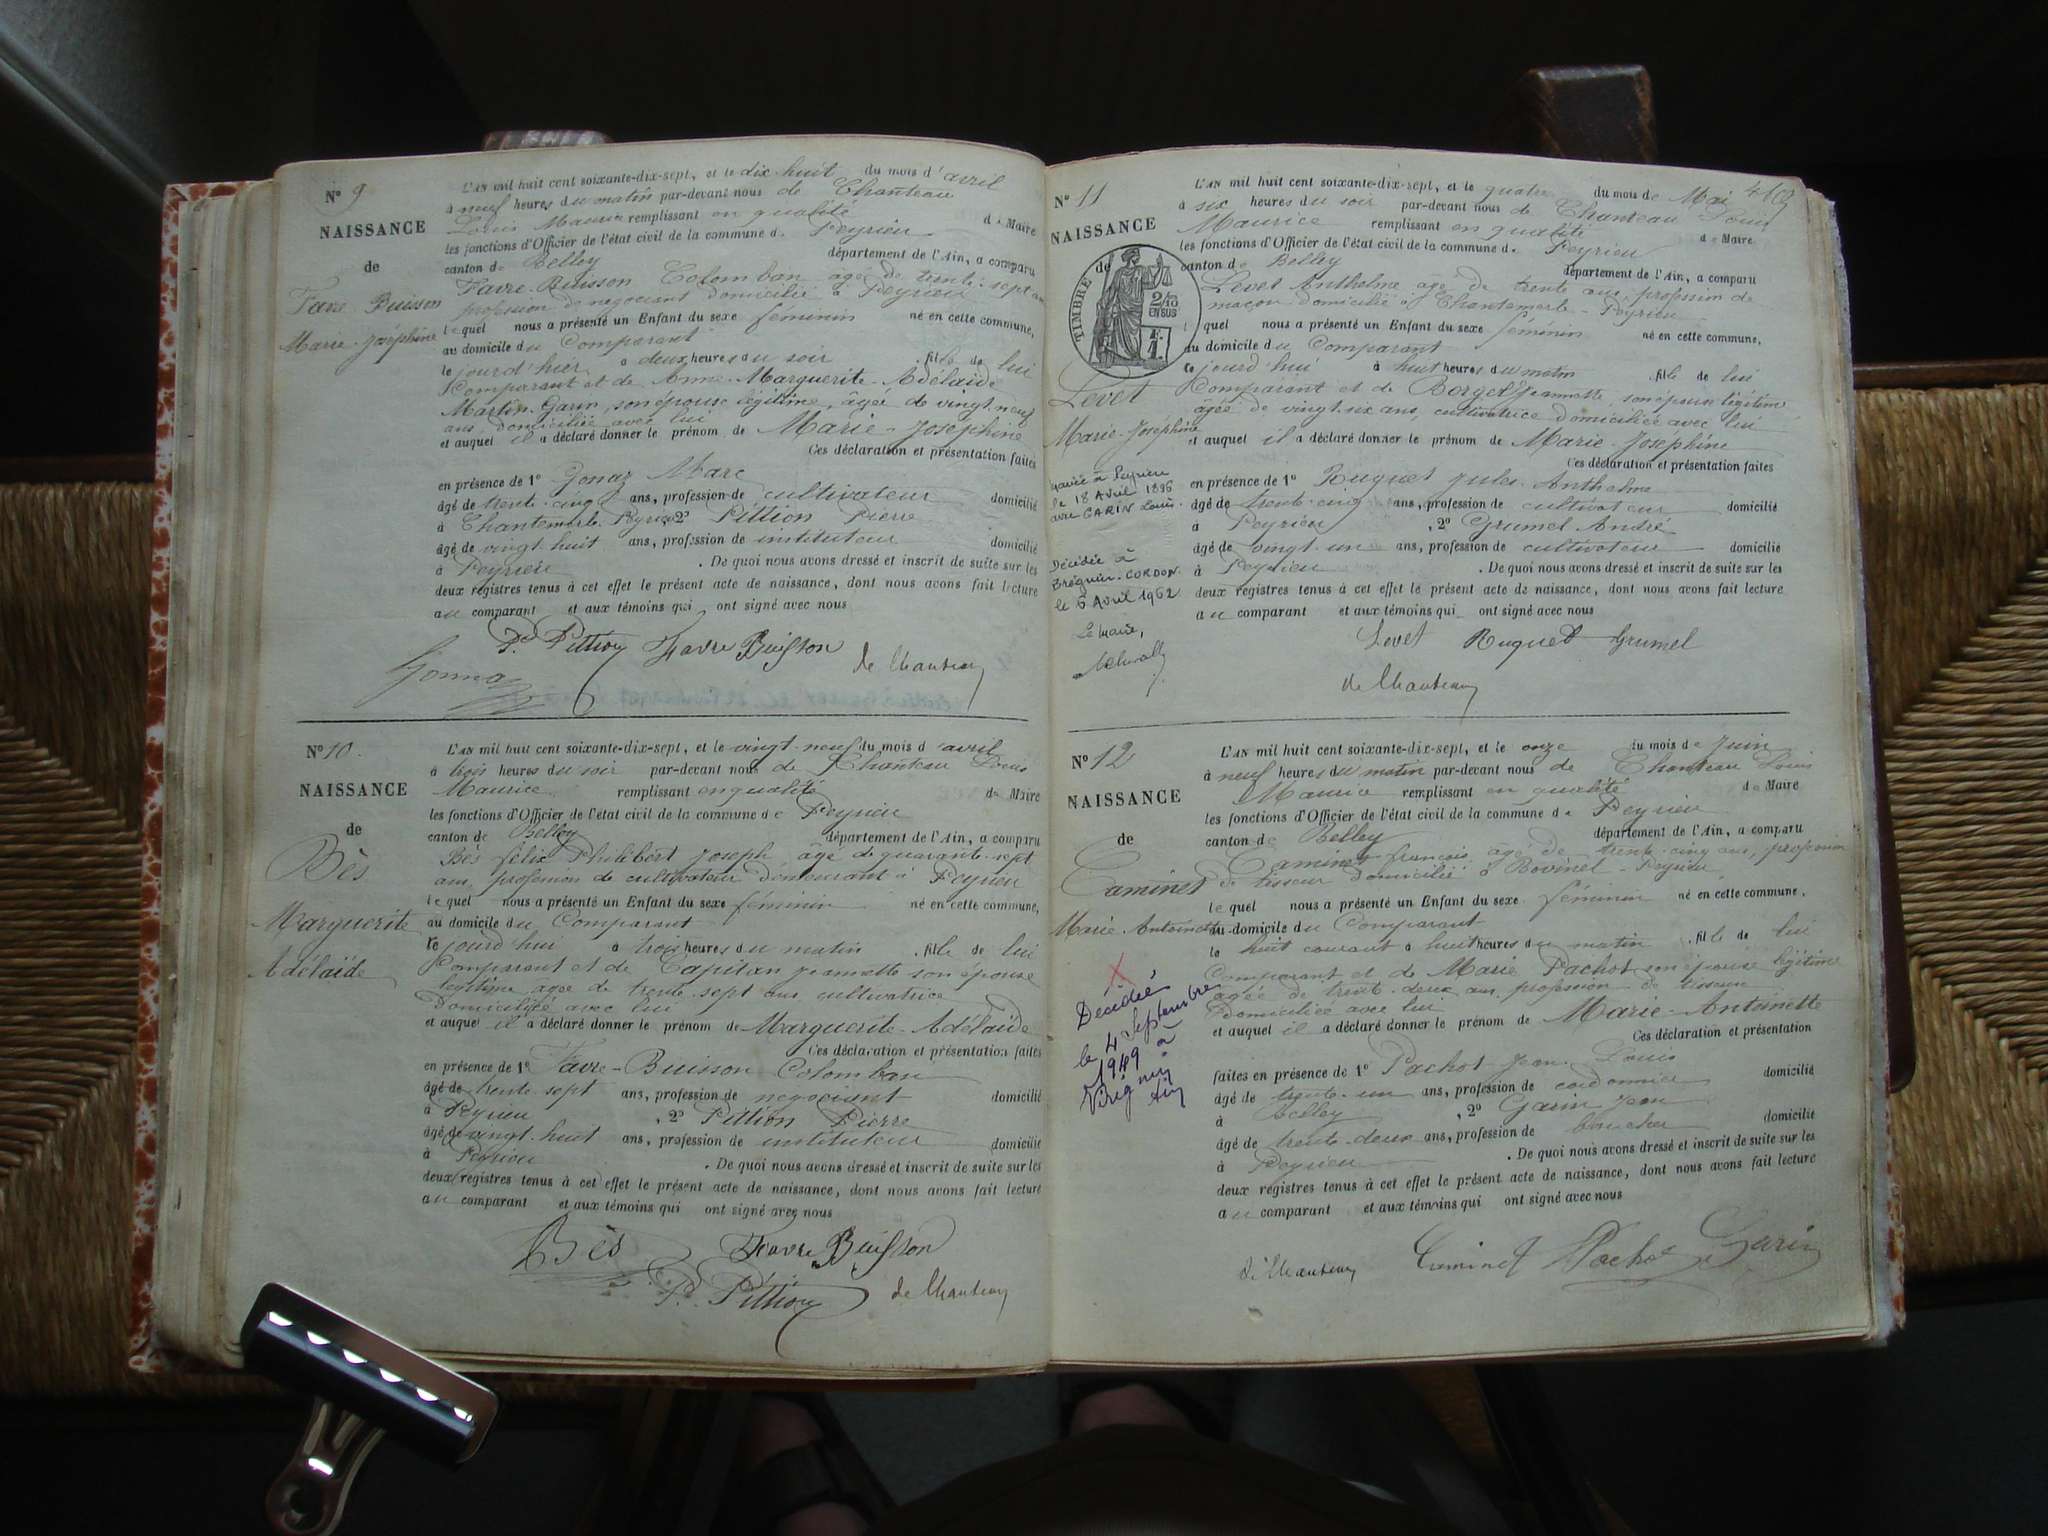 N° 9
NAISSANCE
de
Favre-Buisson
Marie-Joséphine
L'AN mil huit cent soixante-dix-sept, et le dix-huit du mois d'avril
à neuf heures du matin par-devant nous de Chanteau
Louis Maurice remplissant en qualité de Maire
les fonctions d'Officier de l'état civil de la commune de Peyrieu
canton de Belley département de l'Ain, a comparu
Favre-Buisson Colomban âgé de trente-sept ans
profession de négociant domicilié à Peyrieu
lequel nous a présenté un Enfant du sexe féminin né en cette commune,
au domicile du Comparant
le jourd'hier à deux heures du soir, fille de lui
Comparant et de Anne-Marguerite-Adélaïde
Martin-Garin, son épouse légitime, âgée de vingt-neuf
ans domiciliée avec lui
et auquel il a déclaré donner le prénom de Marie-Joséphine
Ces déclaration et présentation faites
en présence de 1° Jonaz Marc
âgé de trente-cinq ans, profession de cultivateur domicilié
à Chantemerle-Peyrieu 2° Pittion Pierre
âgé de vingt-huit ans, profession de instituteur domicilié
à Peyrieu. De quoi nous avons dressé et inscrit de suite sur les
deux registres tenus à cet effet le présent acte de naissance, dont nous avons fait lecture
au comparant et aux témoins qui ont signé avec nous
P. Pittion Favre Buisson de Chanteau
N° 10.
NAISSANCE
de
Bès
Marguerite
Adélaïde
L'AN mil huit cent soixante-dix-sept, et le vingt-neuf du mois d'avril
à trois heures du soir par-devant nous de Chanteau Louis
Maurice remplissant en qualité de Maire
les fonctions d'Officier de l'état civil de la commune de Peyrieu
canton de Belley département de l'Ain, a comparu
Bès félix Philibert Joseph âgé de quarante-sept
ans, profession de cultivateur demeurant à Peyrieu
lequel nous a présenté un Enfant du sexe féminin né en cette commune,
au domicile du Comparant
le jourd'hui à trois heures du matin, fille de lui
Comparant et de Capitan Jeannette son épouse
légitime agée de trente-sept ans cultivatrice
domiciliée avec lui
et auquel il a déclaré donner le prénom de Marguerite-Adélaïde
Ces déclaration et présentation faites
en présence de 1° Favre-Buisson Colomban
âgé de trente sept ans, profession de négociant domicilié
à Peyrieu, 2° Pittion Pierre
âgé de vingt-huit ans, profession de instituteur domicilié
à Peyrieu. De quoi nous avons dressé et inscrit de suite sur les
deux registres tenus à cet effet le présent acte de naissance, dont nous avons fait lecture
au comparant et aux témoins qui ont signé avec nous
Bès Favre Buisson
P. Pittion de Chanteau
N° 11
NAISSANCE
de
TIMBRE
2/10
EN SUS
F.
1.
Levet
Marie-Joséphine
mariée à Peyrieu
le 18 Avril 1896
avec GARIN Louis.
Décédée à
Brégnier-CORDON
le 6 Avril 1962
Le Maire,
L'AN mil huit cent soixante-dix-sept, et le quatre du mois de Mai
à six heures du soir par-devant nous de Chanteau Louis
Maurice remplissant en qualité de Maire
les fonctions d'Officier de l'état civil de la commune de Peyrieu
canton de Belley département de l'Ain, a comparu
Levet Anthelme âgé de trente ans, profession de
maçon domicilié à Chantemerle-Peyrieu
lequel nous a présenté un Enfant du sexe féminin né en cette commune,
au domicile du Comparant
le jourd'hui à huit heures du matin, fille de lui
Comparant et de Borget Jeannette, son épouse légitime
âgée de vingt-six ans, cultivatrice domiciliée avec lui
et auquel il a déclaré donner le prénom de Marie-Joséphine
Ces déclaration et présentation faites
en présence de 1° Ruguet Jules-Anthelme
âgé de trente-cinq ans, profession de cultivateur domicilié
à Peyrieu, 2° Grumel André
âgé de vingt-un ans, profession de cultivateur domicilié
à Peyrieu. De quoi nous avons dressé et inscrit de suite sur les
deux registres tenus à cet effet le présent acte de naissance, dont nous avons fait lecture
au comparant et aux témoins qui ont signé avec nous
Levet Ruguet Grumel
de Chanteau
N° 12
NAISSANCE
de
Caminet
Marie-Antoinette
X
Décédée
le 4 Septembre
1949 à
Virignin
Ain
L'AN mil huit cent soixante-dix-sept, et le onze du mois de Juin
à neuf heures du matin par-devant nous de Chanteau Louis
Maurice remplissant en qualité de Maire
les fonctions d'Officier de l'état civil de la commune de Peyrieu
canton de Belley département de l'Ain, a comparu
Caminet françois, âgé de trente-cinq ans, profession
de tisseur domicilié à Bovinel-Peyrieu
lequel nous a présenté un Enfant du sexe féminin né en cette commune,
au domicile du Comparant
le huit courant à huit heures du matin, fille de lui
Comparant et de Marie Pachot son épouse légitime
âgée de trente-deux ans, profession de tisseuse
domiciliée avec lui
et auquel il a déclaré donner le prénom de Marie-Antoinette
Ces déclaration et présentation
faites en présence de 1° Pachot Jean-Louis
âgé de trente-un ans, profession de cordonnier domicilié
à Belley, 2° Garin Jean
âgé de trente-deux ans, profession de boucher domicilié
à Peyrieu. De quoi nous avons dressé et inscrit de suite sur les
deux registres tenus à cet effet le présent acte de naissance, dont nous avons fait lecture
au comparant et aux témoins qui ont signé avec nous
de Chanteau Caminet Pachot Garin